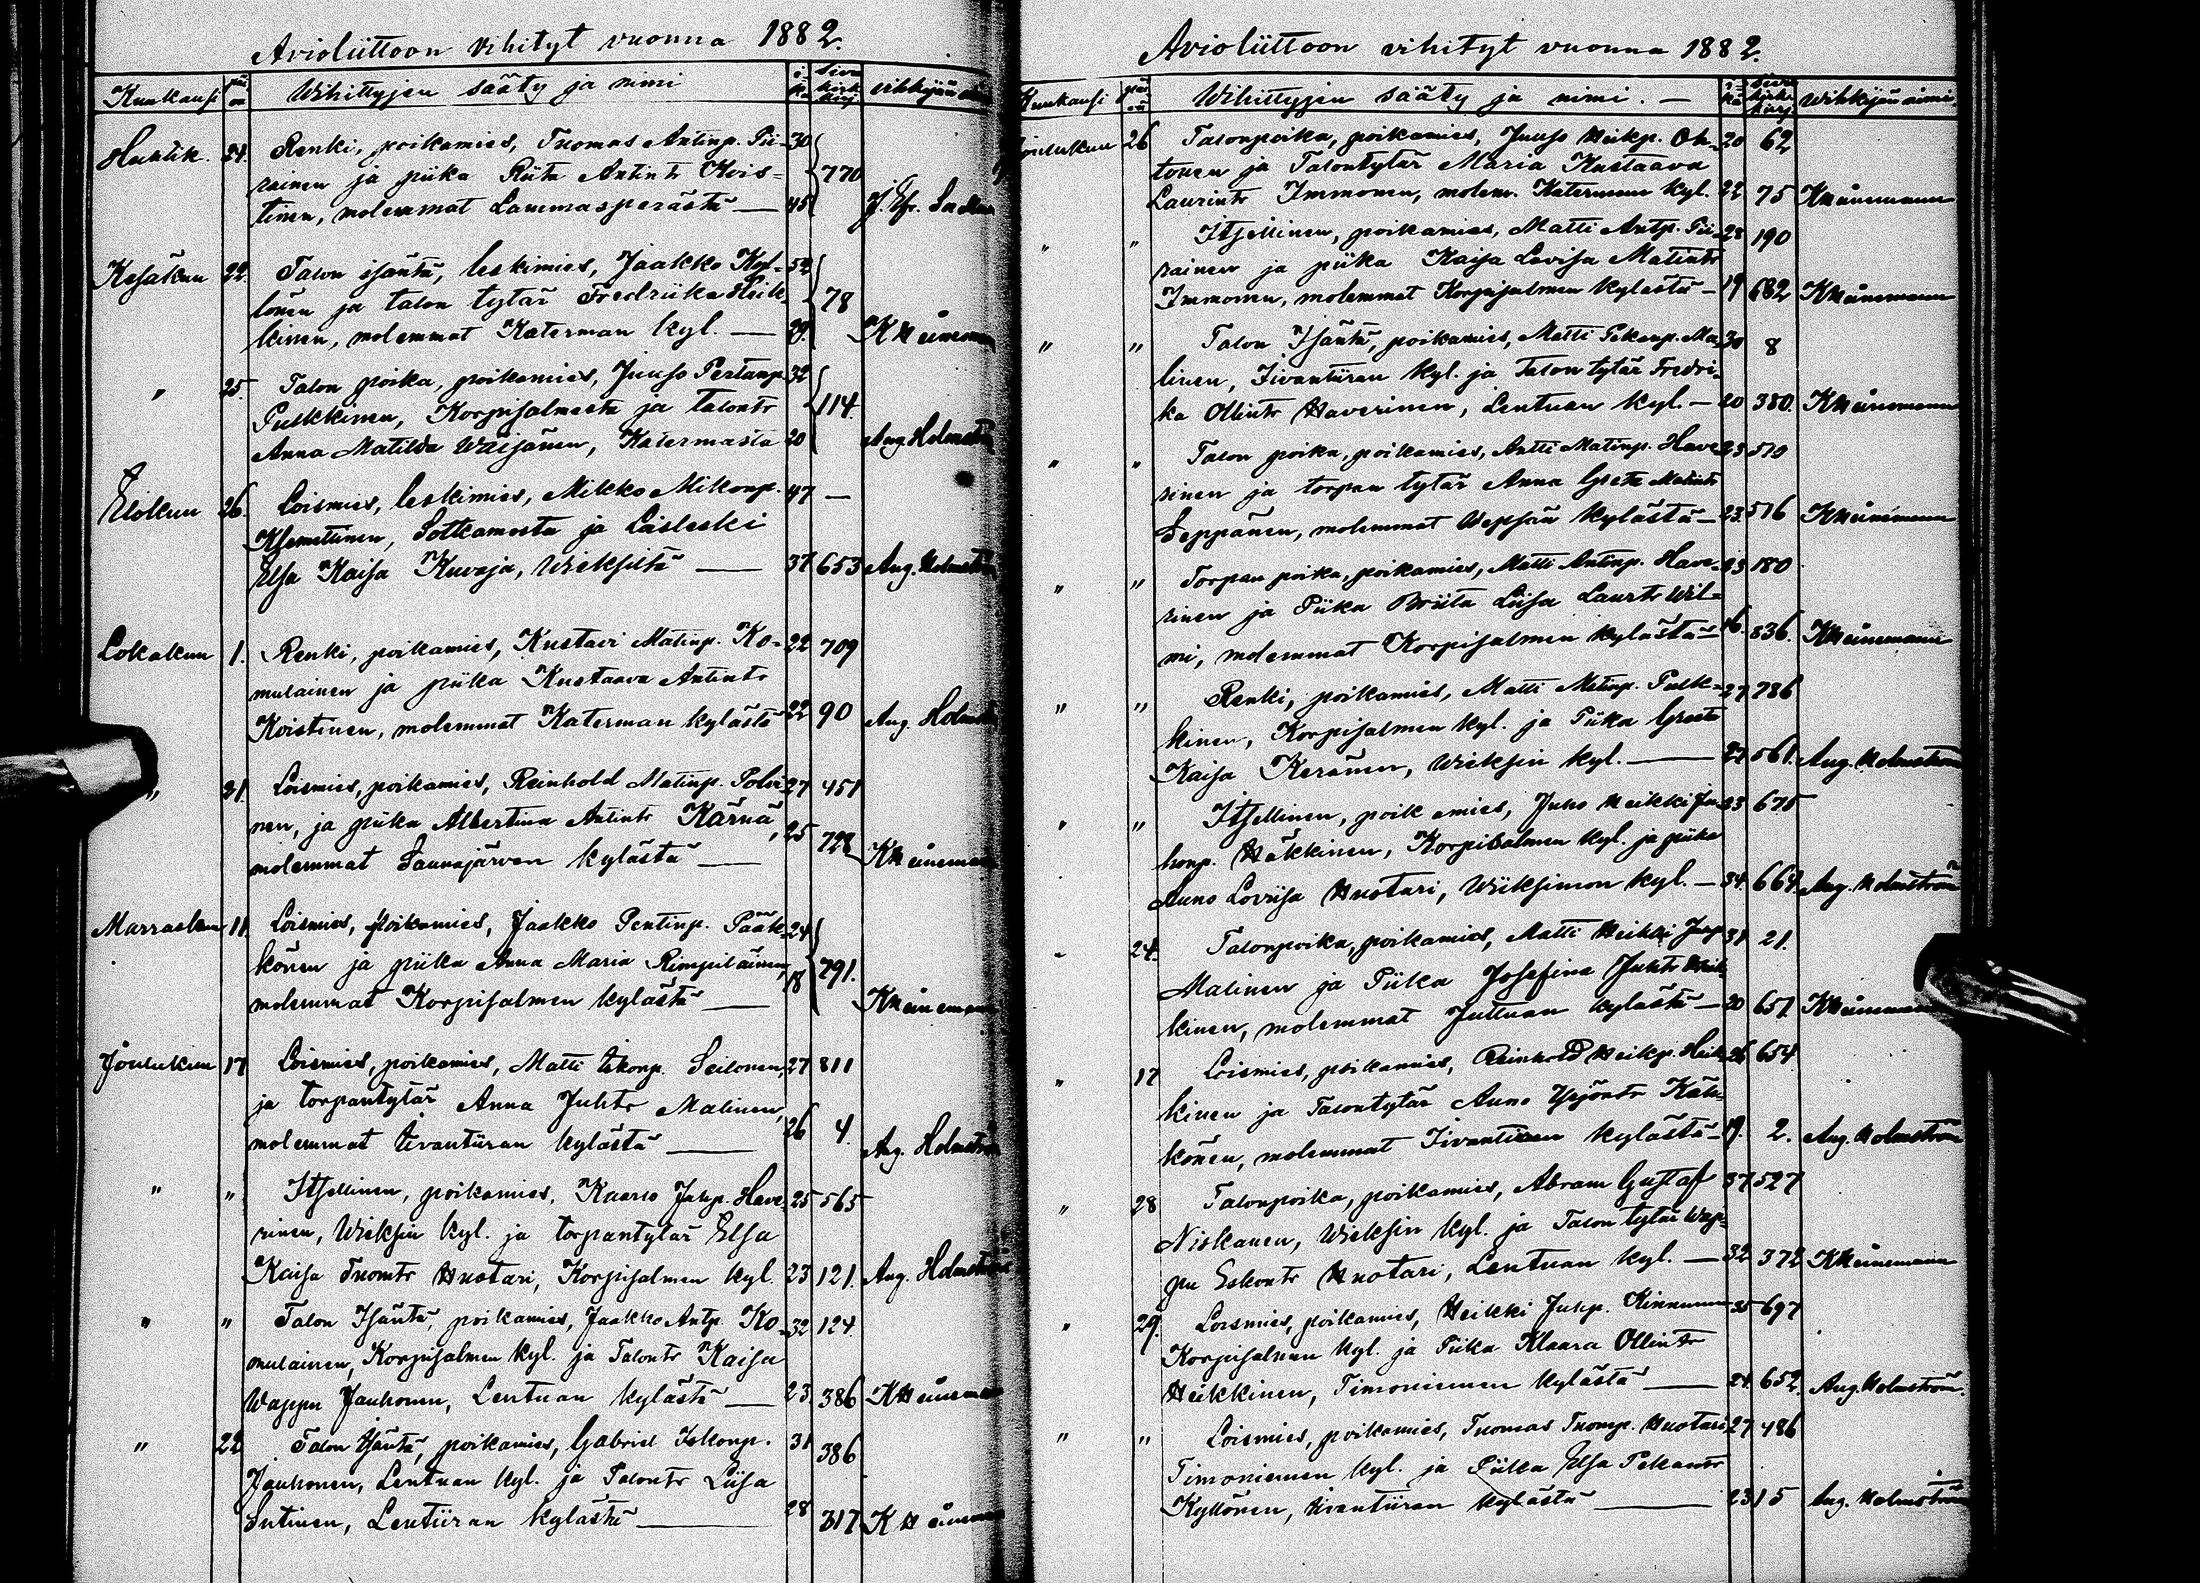 Avioliittoon vihityt vuonna 1882.
Kuukausi päivä Wihittyjen sääty ja nimi ikä Sivu kirk. kirj. vihkijän nimi
Huhtik. 24. Renki, poikamies, Tuomas Antinp. Pii- 30
rainen ja piika Riita Antintr Kois= 770
tinen, molemmat Lammasperästä — 45
Kesäkuu 22. Talon isäntä, leskimies, Jaakko Kyl= 52
lönen ja talon tytär Fredriika Heik- 78
kinen, molemmat Katerman kyl. — 29. K Heinemann
" 25. Talon poika, poikamies, Juuso Pertanp. 32
Pulkkinen, Korpisalmesta ja talontr 114.
Anna Matilda Wäisänen, Katermasta 20 Aug. Holmström
Elokuu 26. Loismies, leskimies, Mikko Mikonp. 47 —
Kemettinen, Sotkamosta ja Loisleski
Elsa Kaisa Kuvaja, Wieksiltä — 37 653 Aug. Holmström
Lokakuu 1. Renki, poikamies, Kustavi Matinp. Ko= 22 709
mulainen ja piika Kustaava Antintr
Koistinen, molemmat Katerman kylästä 22 90 Aug. Holmström
" 21. Loismies, poikamies, Reinhold Matinp. Polvi 27 451
nen, ja piika Albertina Antintr Kärnä, 25 728
molemmat Saunajärven kylästä — K Heinemann
Marraskuu 11. Loismies, poikamies, Jaakko Pentinp. Pääk- 24
könen ja piika Anna Maria Rimpiläinen, 18 791.
molemmat Korpisalmen kylästä — K Heinemann
Joulukuu 17 Loismies, poikamies, Matti Iikonp. Seilonen, 27 811
ja torpantytär Anna Juhtr Malinen,
molemmat Iivantiiran kylästä — 26 4. Aug. Holmström
" " Itsellinen, poikamies, Kaarlo Juhp. Have 25 565
rinen, Wieksin kyl. ja torpantytär Elsa
Kaisa Tuomtr Huotari, Korpisalmen kyl. 23 121. Aug. Holmström
" " Talon Isäntä, poikamies, Jaakko Antp. Ko- 32 124
mulainen, Korpisalmen kyl. ja Talontr Kaisa
Wappu Jauhonen, Lentuan kylästä — 23. 386 K Heinemann
" 22 Talon Isäntä, poikamies, Gabriel Eskonp. 31 386
Jauhonen, Lentuan kyl. ja Talontr Liisa
Sutinen, Lentiiran kylästä — 28 317 K Heinemann
Avioliittoon vihityt vuonna 1882.
Kuukausi päivä Wihittyjen sääty ja nimi. — ikä Sivu kirk. kirj. Wihkijän nimi
Joulukuu 26 Talonpoika, poikamies, Juuso Heikp. Oh- 20 62
tonen ja Talontytär Maria Kustaava
Laurintr Immonen, molem. Katerman kyl. 22 75 K Heinemann
" " Itsellinen, poikamies, Matti Antp. Pii- 28 190
rainen ja piika Kaisa Lovisa Matintr
Immonen, molemmat Korpisalmen kylästä — 19 682 K Heinemann
" " Talon Isäntä, poikamies, Matti Pekanp. Ma- 30 8
linen, Iivantiiran kyl. ja Talon tytär Fredri-
ka Ollintr Haverinen, Lentuan kyl. — 20 380. K Heinemann
" " Talon poika, poikamies, Antti Matinp. Have- 23 510
rinen ja torpan tytär Anna Greta Matintr
Seppänen, molemmat Wepsän kylästä — 23 516 K Heinemann
" " Torpan poika, poikamies, Matti Antinp. Have- 23 180
rinen ja Piika Briita Liisa Laurtr Wil=
mi, molemmat Korpisalmen kylästä — 16. 836. K Heinemann
" " Renki, poikamies, Matti Matinp. Pulk= 27 786
kinen, Korpisalmen kyl. ja Piika Greta
Kaisa Keränen, Wieksin kyl. — 27 561. Aug. Holmström
" " Itsellinen, poikamies, Juho Heikki Ju- 33 675
honp. Häkkinen, Korpisalmen kyl. ja piika
Anna Loviisa Huotari, Wiiksimon kyl. — 34. 664. Aug. Holmström
" 24. Talonpoika, poikamies, Matti Heikki Juhp. 31 21.
Malinen ja Piika Josefina Juhtr Heik
kinen, molemmat Juttuan kylästä — 20 651. K Heinemann
" 17 Loismies, poikamies, Reinhold Heikp. Heik- 26 654
kinen ja Talontytär Anna Yrjöntr Kähkönen
könen, molemmat Iivantiiran kylästä — 19. 2. Aug. Holmström
" 28 Talonpoika, poikamies, Abram Gustaf 37 527
Niskanen, Wieksin kyl. ja Talon tytär Wap-
pu Eskontr Huotari, Lentuan kyl. — 32 372 K Heinemann
" 29. Loismies, poikamies, Heikki Juhp. Kinnunen 35 697
Korpisalmen kyl. ja Piika Klaara Ollintr
Heikkinen, Timoniemen kylästä — 24. 652. Aug. Holmström.
" " Loismies, poikamies, Tuomas Tuomp. Huotari 27 486
Timoniemen kyl. ja Piika Elsa Pekantr
Kyllönen, Iivantiiran kylästä — 23 15 Aug. Holmström